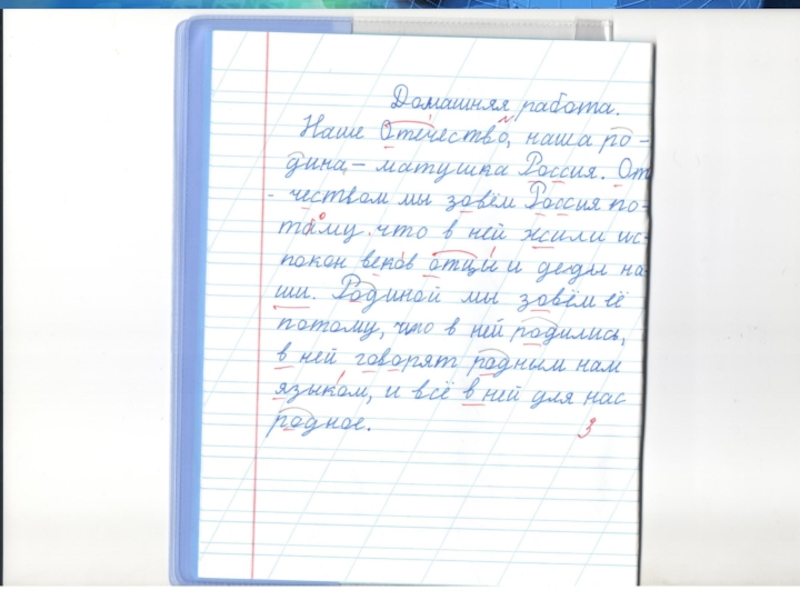 Домашняя работа.
Наше Отечество, наша ро-
дина, – матушка Россия. От
- чеством мы зовём Россия по-
таму что в ней жили ис-
покон веков отцы и деды на-
ши. Родиной мы зовём её
потому, что в ней родились,
в ней говорят родным нам
языком, и всё в ней для нас
родное.
3